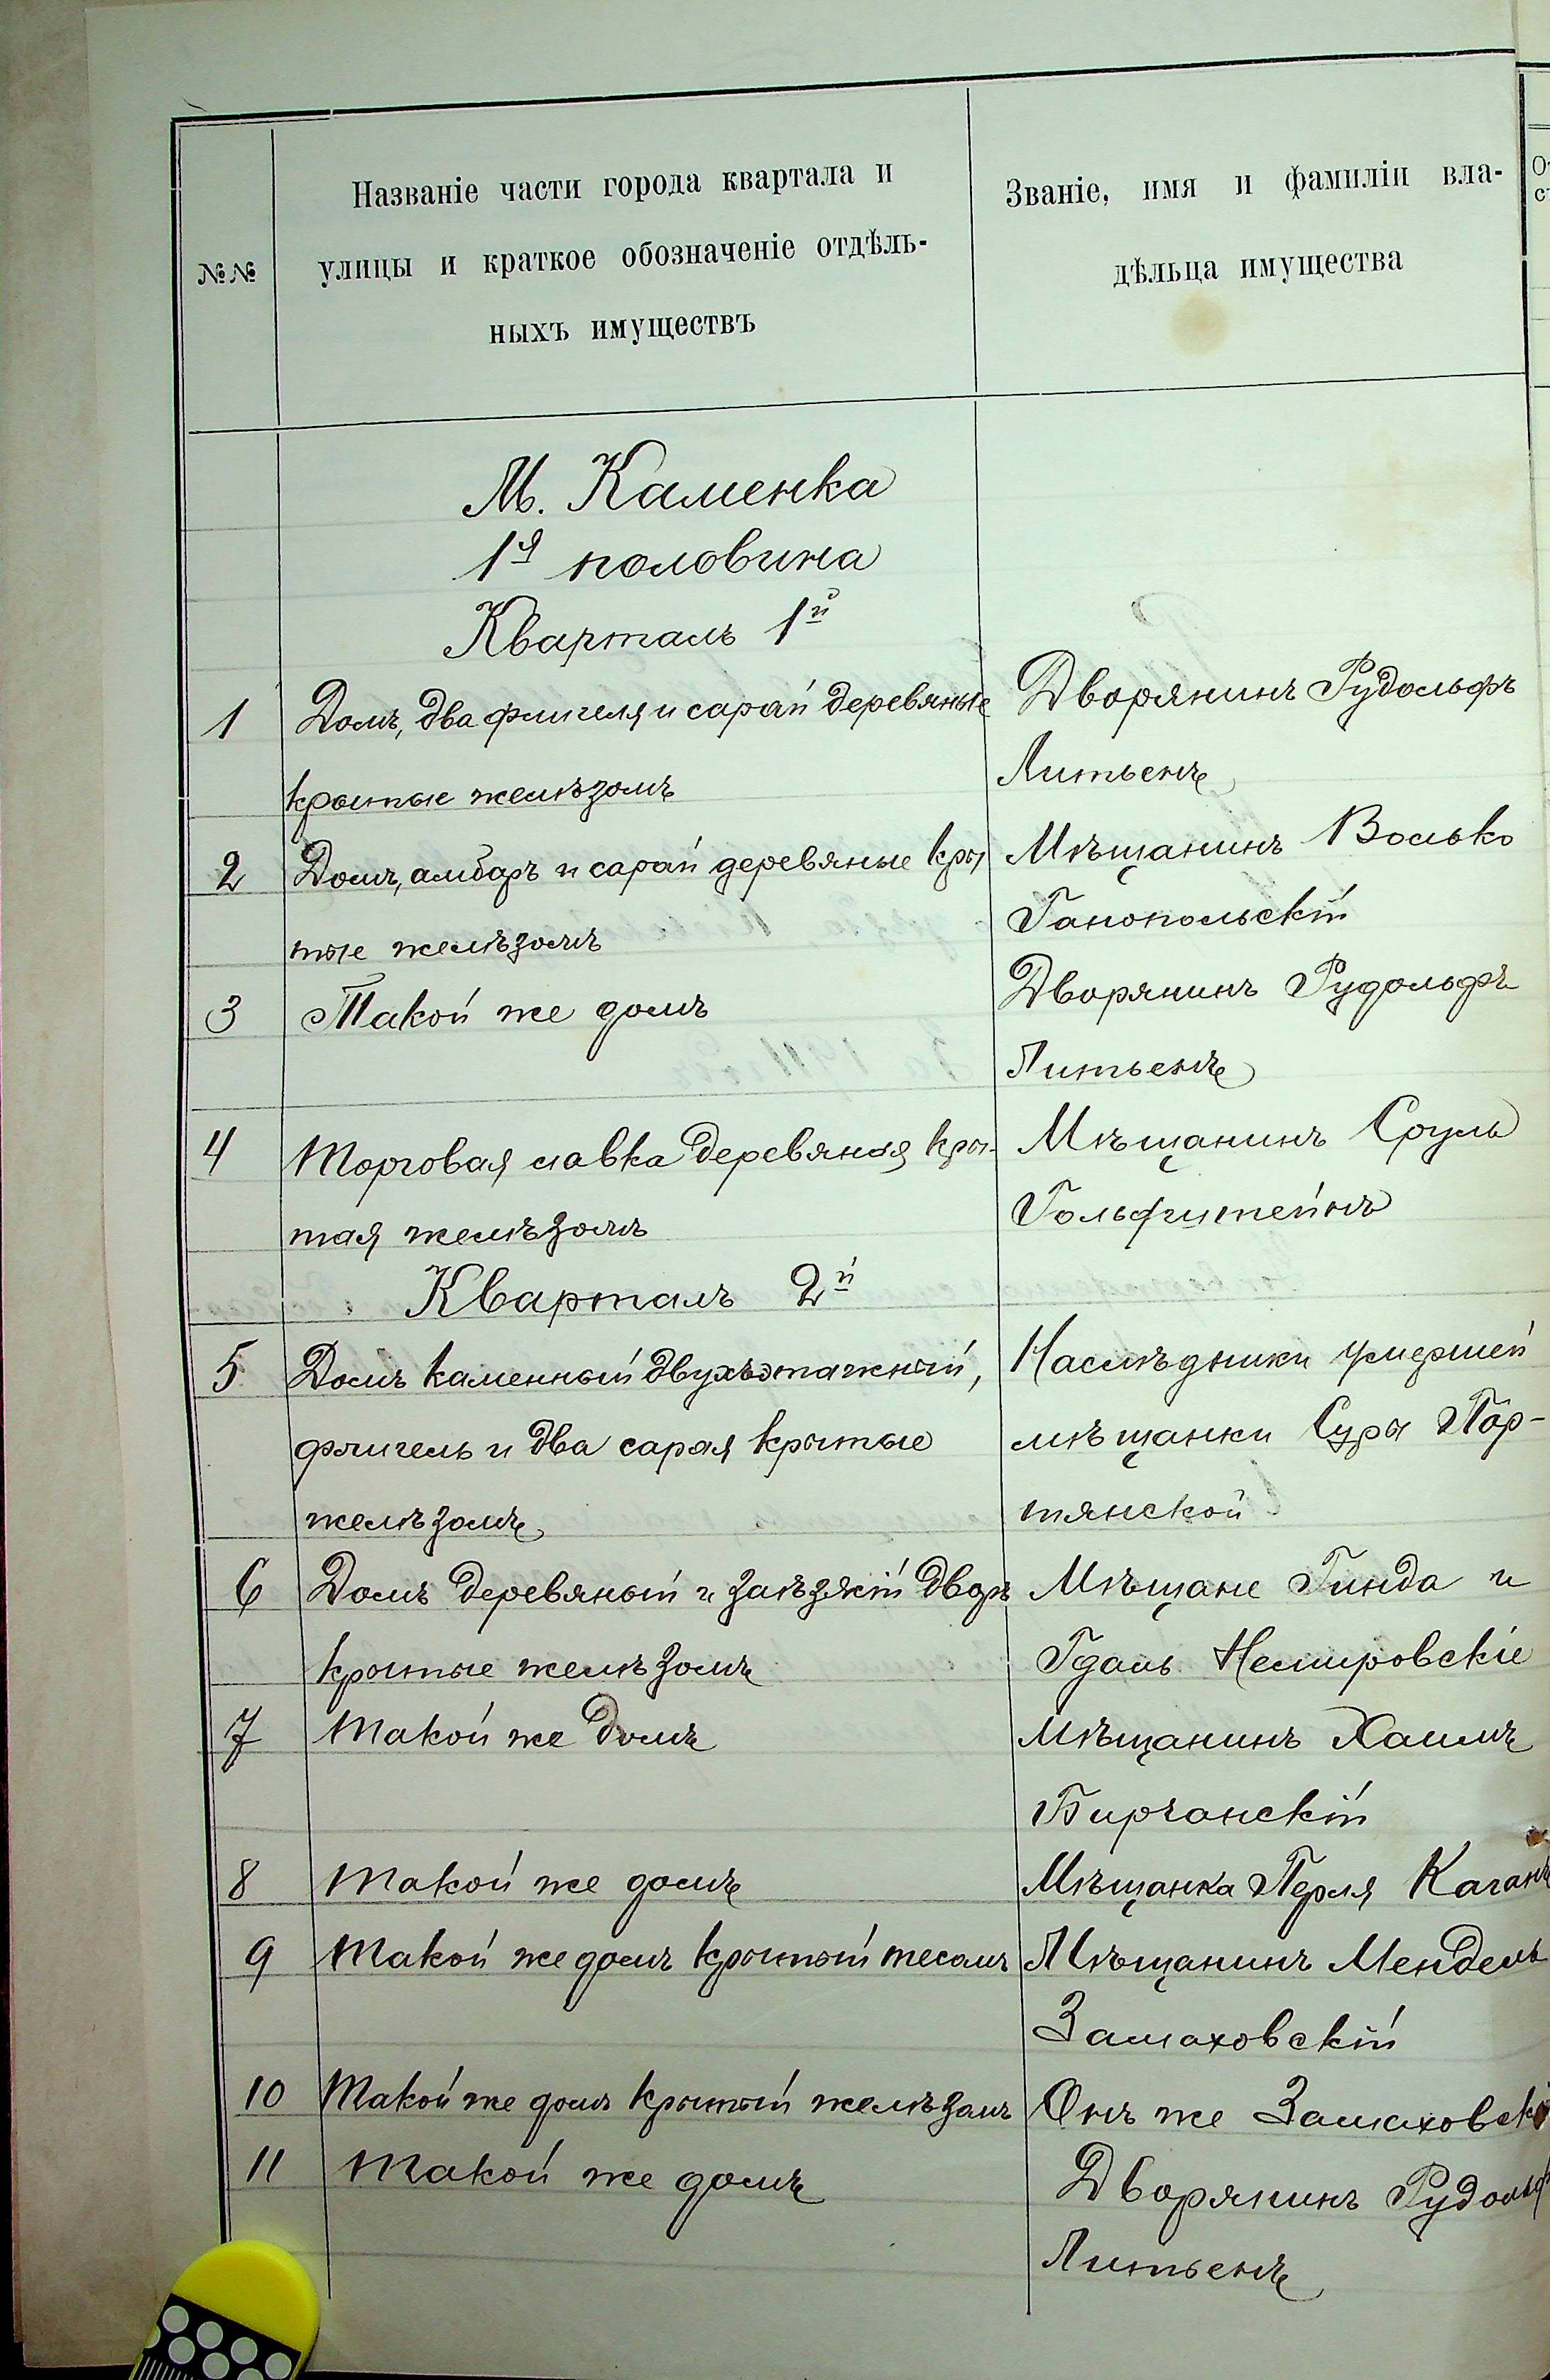 №№
Названіе части города квартала и
улицы и краткое обозначеніе отдѣль-
ныхъ имуществъ
Званіе, имя и фамиліи вла-
дѣльца имущества
М. Каменка
1я половина
Кварталъ 1й
1 Домъ, два флигеля и сарай деревяные
крытые желѣзомъ
Дворянинъ Рудольфъ
Литьенъ
2 Домъ, амбаръ и сарай деревяные кры
тые желѣзомъ
Мѣщанинъ Волько
Ганопольскій
3 Такой же домъ
Дворянинъ Рудольфъ
Литьенъ
4 Торговая лавка деревяная кры-
тая желѣзомъ
Мѣщанинъ Сруль
Гольфштейнъ
Кварталъ 2й
5 Домъ каменный двухъэтажный,
флигель и два сарая крытые
желѣзомъ
Наслѣдники умершей
мѣщанки Суры Пор-
тянской
6 Домъ деревяный и заѣзжій дворъ
крытые желѣзомъ
Мѣщане Гинда и
Гдаль Немировскіе
7 Такой же домъ
Мѣщанинъ Хаимъ
Бирчанскій
8 Такой же домъ
Мѣщанка Перля Каганъ
9 Такой же домъ крытый тесомъ
Мѣщанинъ Мендель
Замаховскій
10 Такой же домъ крытый желѣзомъ
Онъ же Замаховскі
11 Такой же домъ
Дворянинъ Рудольф
Литьенъ